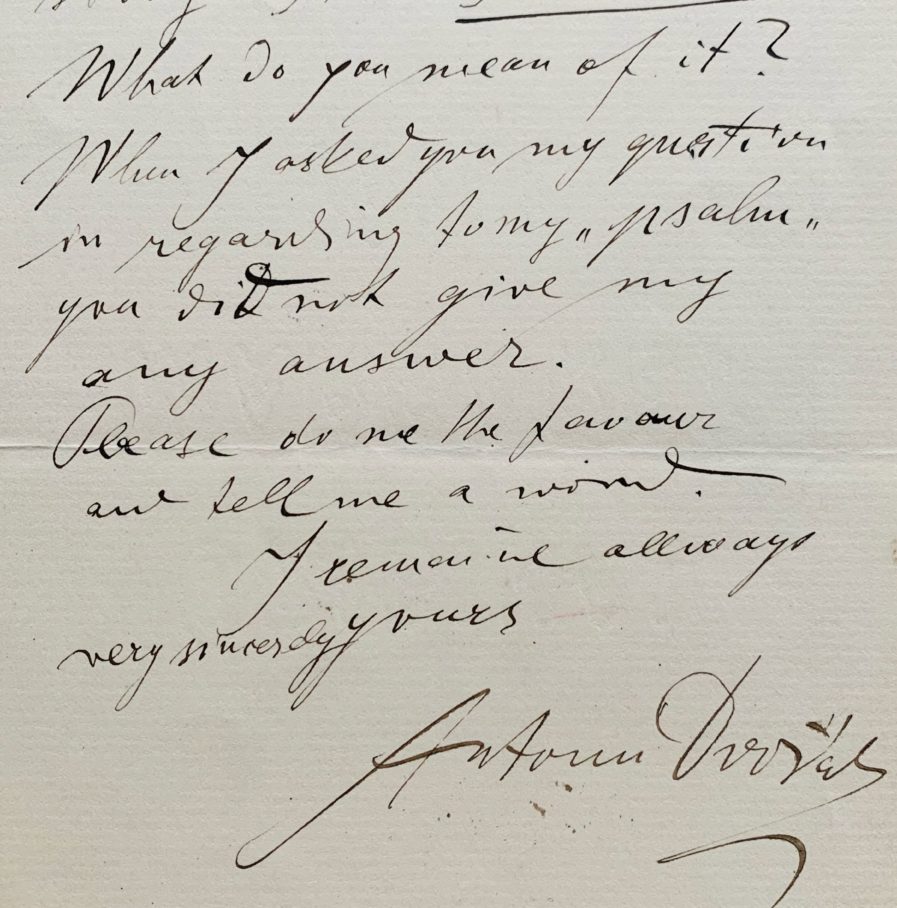 What do you mean of it?
When I asked you my question
in regarding to my „psalm„
you did not give my
any answer.
Please do me the favour
and tell me a word.
I remaine allways
very sincerely yours
Antonín Dvořák